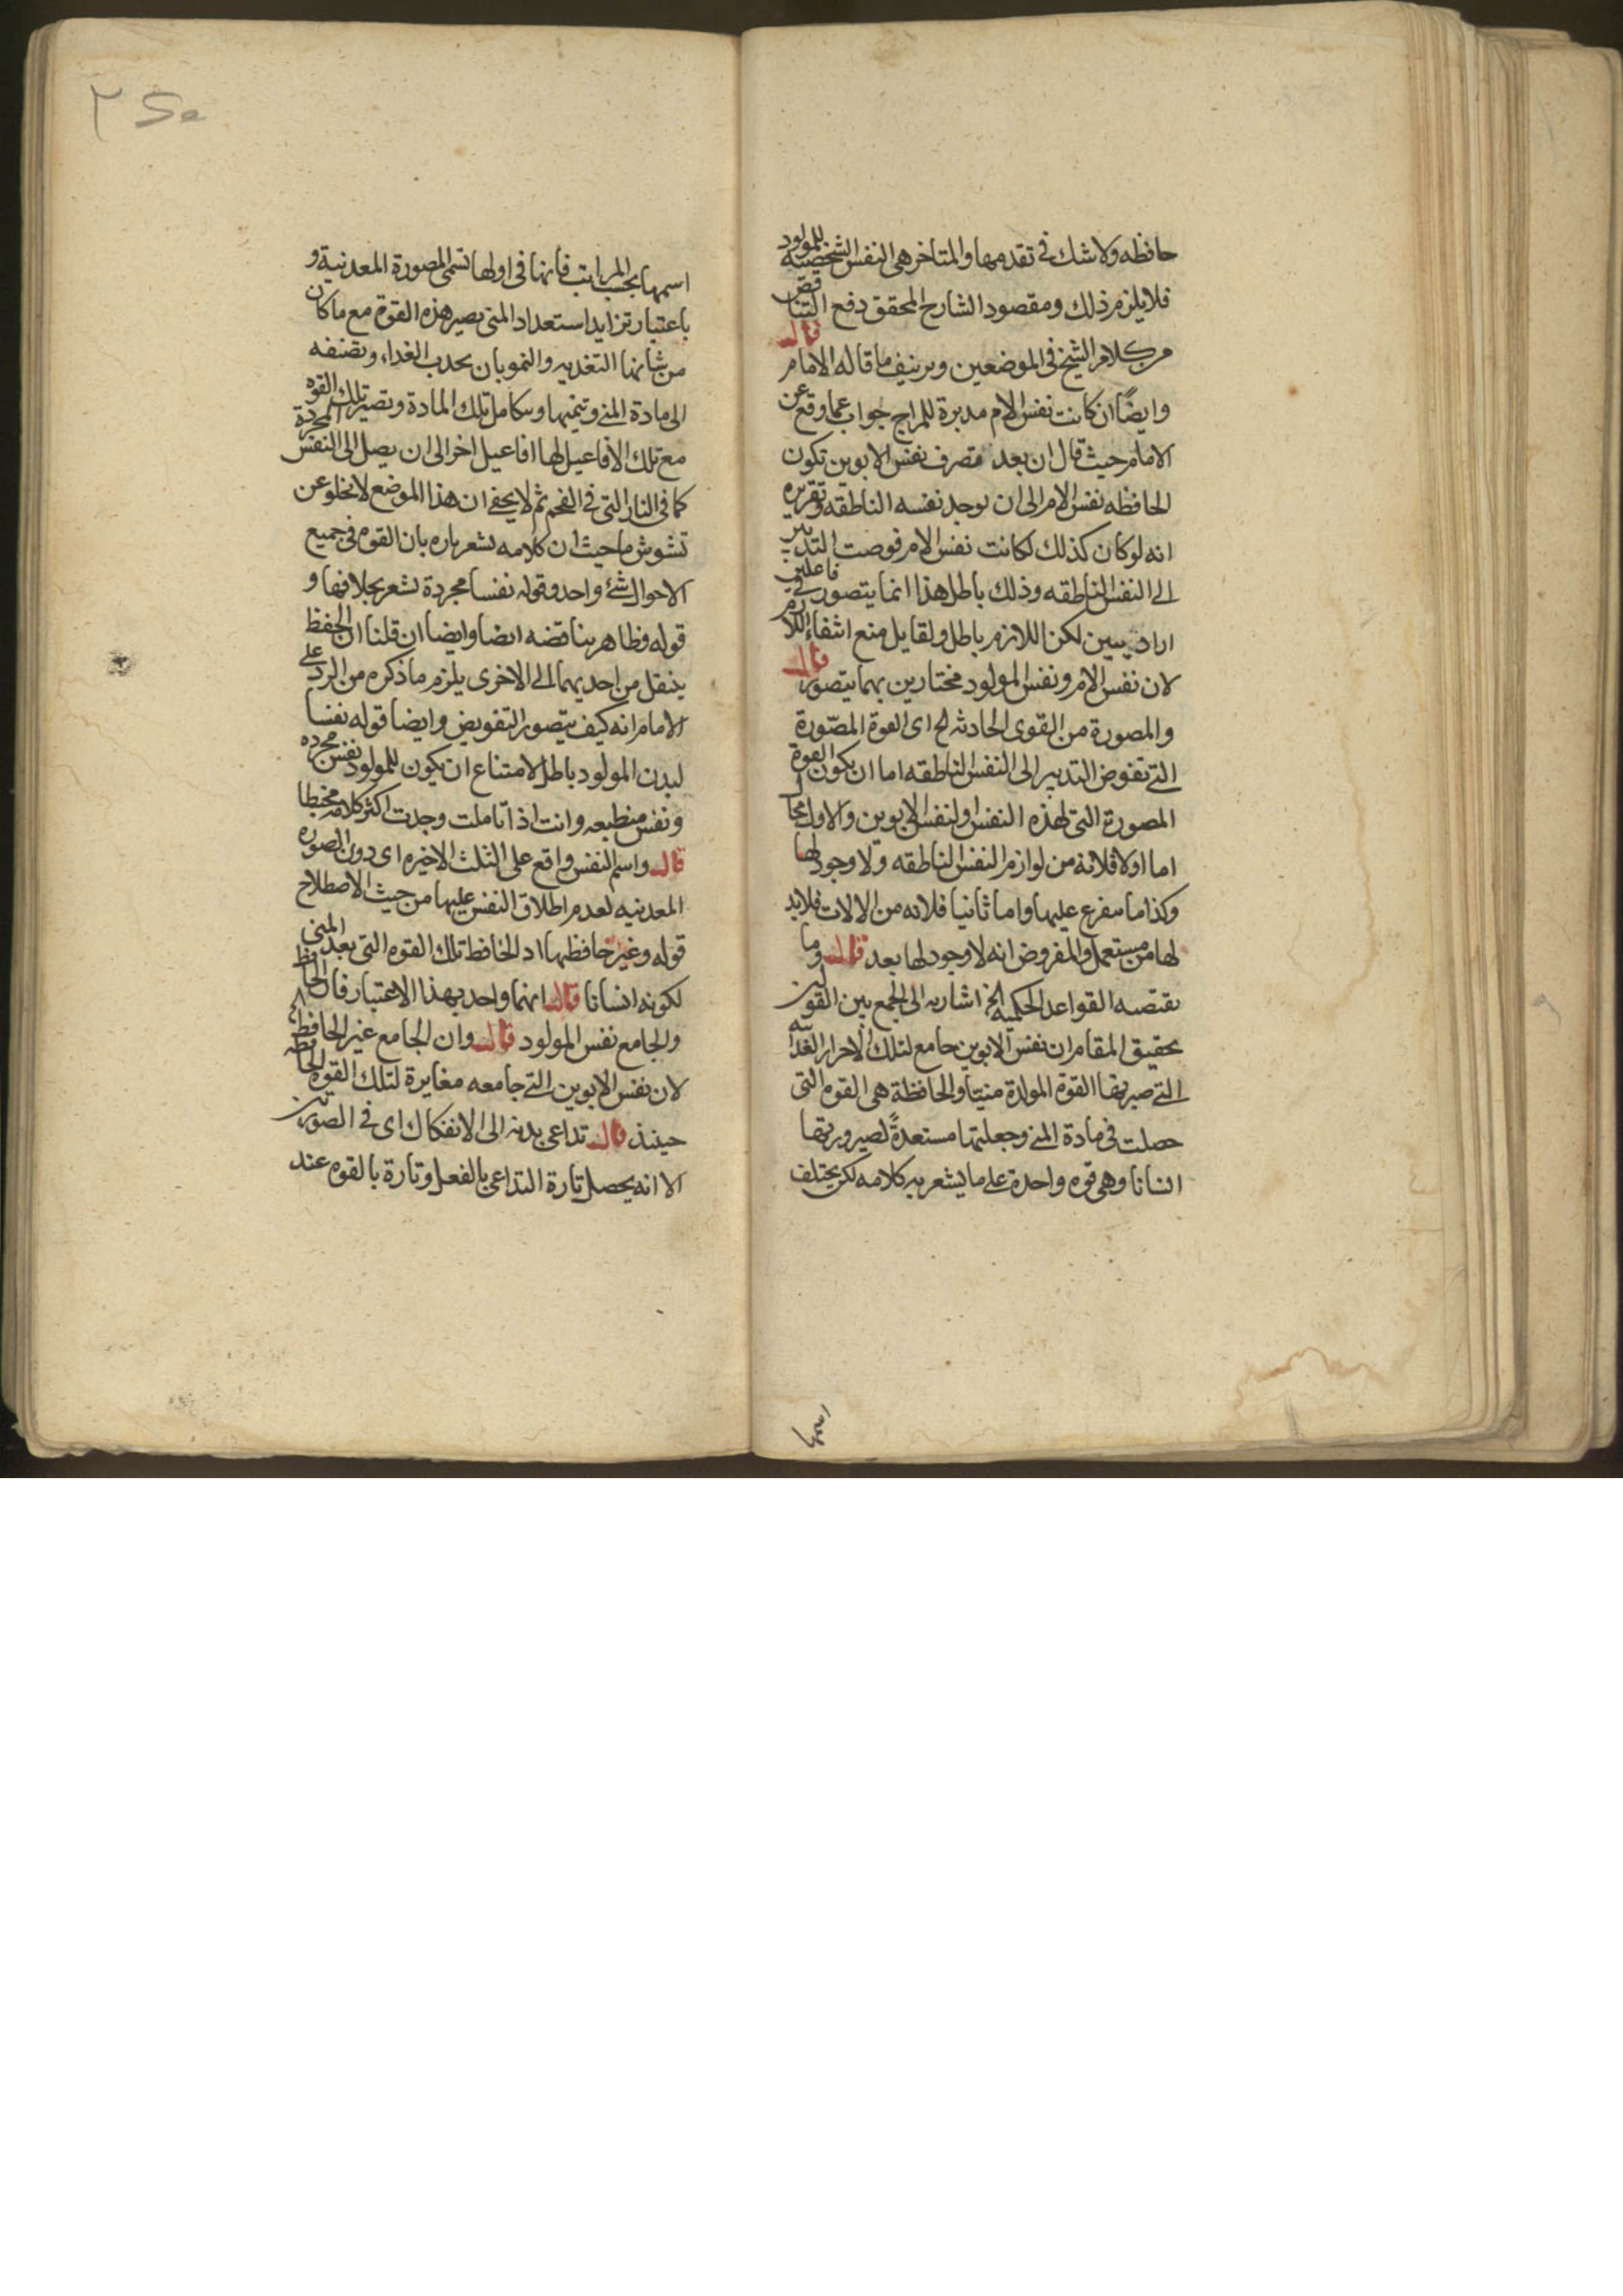 حافظه ولا شك في تقدمها والمتاخر هي النفس الشخصية للمولود
فلا يلزم ذلك ومقصود الشارح المحقق دفع التناقض
من كلام الشيخ في الموضعين وتزييف ما قاله الامام قال
وايضًا ان كانت نفس الام مدبرة للمزاج جواب عما وقع عن
الامام حيث قال ان بعد تصرف نفس الابوين تكون
الحافظه نفس الام الى ان يوجد نفسه الناطقه وتقريره
انه لو كان كذلك لكانت نفس الام فوضت التدبير
الى النفس الناطقه وذلك باطل هذا انما يتصور في فاعلين
اراديين لكن اللازم باطل ولقايل منع انتفاء اللازم
لان نفس الام ونفس المولود مختارين بهما يتصور قال
والمصورة من القوى الحادثه الخ اى القوة المصّورة
التي تفوض التدبير الى النفس الناطقه اما ان يكون القوة
المصورة التي لهذه النفس او لنفس الابوين والاول محال
اما اولا فلانه من لوازم النفس الناطقه ولا وجود لها
وكذا ما مفرع عليها واما ثانيا فلانه من الالات فلا بد
لها من مستعمل والمفروض انه لا وجود لها بعد قال وما
تقتضيه القواعد الحكميه الخ اشاره الى الجمع بين القولين
تحقيق المقام ان نفس الابوين جامع لتلك الاجزاء الغذائيه
التي صيرتها القوة المولدة منيّا والحافظة هي القوه التي
حصلت في مادة المني وجعلتها مستعدةً لصيرورتها
انسانا وهي قوه واحدة على ما يشعر به كلامه لكن يختلف
اسمها بحسب المراتب فانها في اولها تسمى المصورة المعدنية و
باعتبار تزايد استعداد المني يصير هذه القوة مع ما كان
من شانها التغذيه والنمو بان يجذب الغذاء وتضيفه
الى مادة المني وتنميها وتتكامل تلك المادة وتصير تلك القوه
مع تلك الافاعيل لها افاعيل اخر الى ان يصل الى النفس المجردة
كما في النار التي في الفحم ثم لا يخفى ان هذا الموضع لا يخلو عن
تشوش ما حيث ان كلامه يشعر تاره بان القوه في جميع
الاحوال شئ واحد وقوله نفسا مجردة يشعر بخلافها و
قوله فظاهر يناقضه ايضا وايضا ان قلنا ان الحفظ
ينقل من احديهما الى الاخرى يلزم ما ذكره من الرد على
الامام انه كيف يتصور التفويض وايضا قوله نفسا
لبدن المولود باطل لامتناع ان يكون للمولود نفس مجرده
ونفس منطبعه وانت اذا تاملت وجدت اكثر كلامه مخبطا
قال واسم النفس واقع على الثلث الاخيره اى دون الصوره
المعدنيه لعدم اطلاق النفس عليها من حيث الاصطلاح
قوله وغير حافظها اذ الحافظ تلك القوه التي بعد المني
لكونه انسانا قال انهما واحد بهذا الاعتبار فان الحافظ
والجامع نفس المولود قال وان الجامع غير الحافظ
لان نفس الابوين التي جامعه مغايرة لتلك القوه الحافظه
حينئذ قال تداعى بدنه الى الانفكاك اى في الصورتين
الا انه يحصل تارة التداعى بالفعل وتارة بالقوه عند